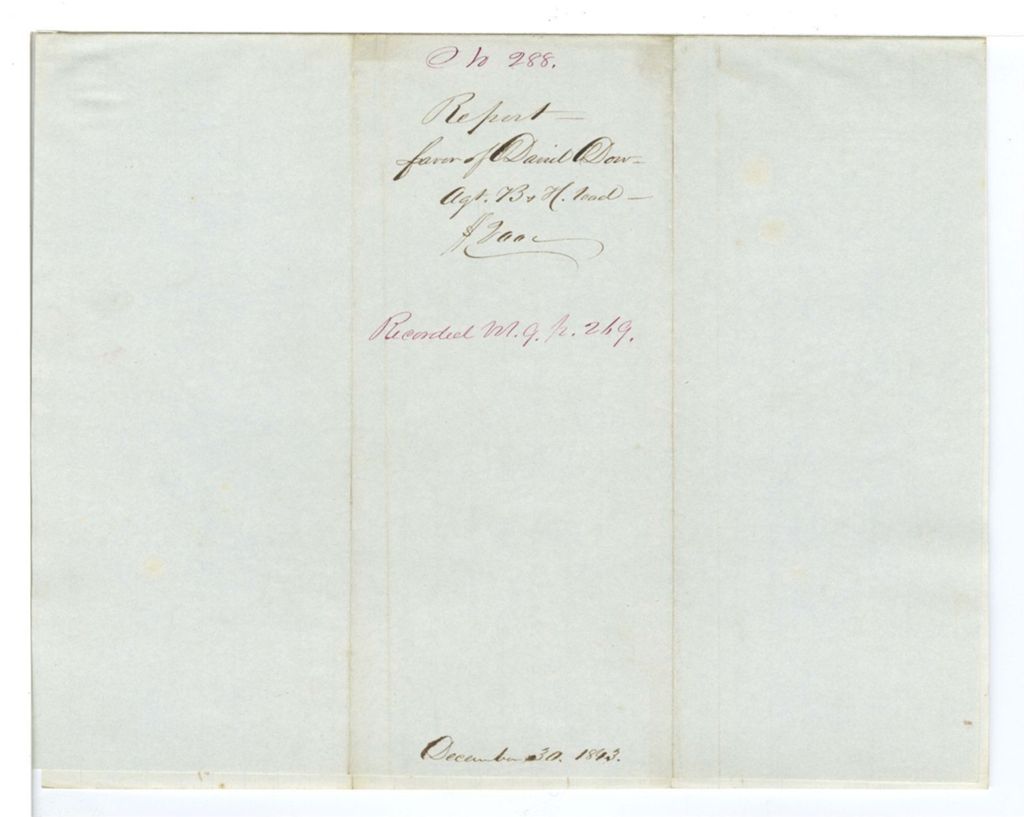 No 288.
Report —
favor of Daniel Dow —
Agt. B & H. road —
$200
Recorded M. 9. p. 269.
December 30. 1843.